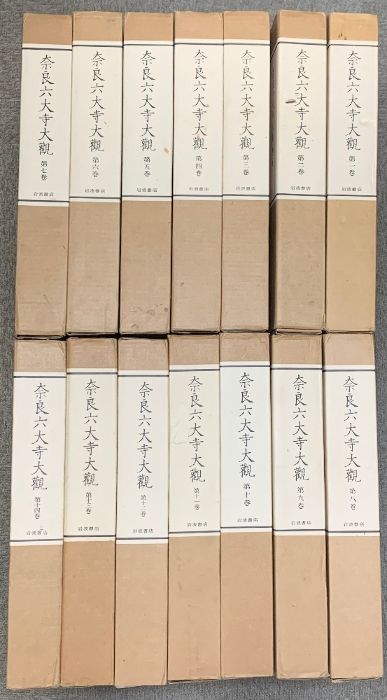 奈良六大寺大觀
第一巻
岩波書店
奈良六大寺大觀
第二巻
岩波書店
奈良六大寺大觀
第三巻
岩波書店
奈良六大寺大觀
第四巻
岩波書店
奈良六大寺大觀
第五巻
岩波書店
奈良六大寺大觀
第六巻
岩波書店
奈良六大寺大觀
第七巻
岩波書店
奈良六大寺大觀
第八巻
岩波書店
奈良六大寺大觀
第九巻
岩波書店
奈良六大寺大觀
第十巻
岩波書店
奈良六大寺大觀
第十一巻
岩波書店
奈良六大寺大觀
第十二巻
岩波書店
奈良六大寺大觀
第十三巻
岩波書店
奈良六大寺大觀
第十四巻
岩波書店